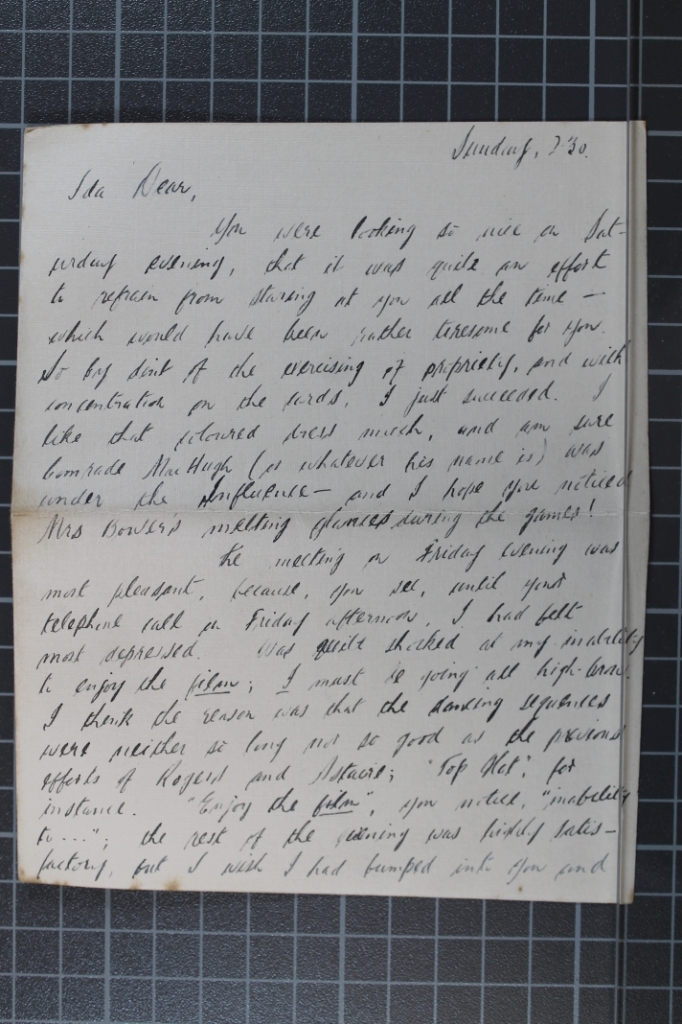 Sunday, 7.30.
Ida Dear,
You were looking so nice on Sat-
urday evening, that it was quite an effort
to refrain from staring at you all the time —
which would have been rather tiresome for you.
So by dint of the exercising of propriety, and with
concentration on the cards, I just succeeded. I
like that coloured dress much, and am sure
Comrade MacHugh (or whatever his name is) was
under the Influence — and I hope you noticed
Mrs Bower's melting glances during the games!
The meeting on Friday evening was
most pleasant, because, you see, until your
telephone call on Friday afternoon, I had felt
most depressed. Was quite shocked at my inability
to enjoy the film; I must be going all high-brow.
I think the reason was that the dancing sequences
were neither so long nor so good as the previous
efforts of Rogers and Astaire; "Top Hat", for
instance. "Enjoy the film", you notice, "inability
to ..."; the rest of the evening was highly satis-
factory, but I wish I had bumped into you and